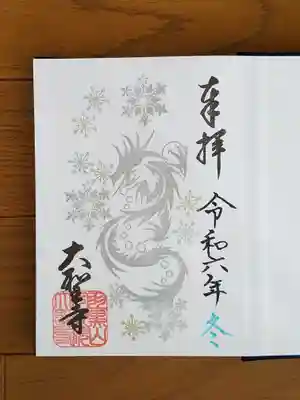 奉拝
令和六年 冬
大聖寺